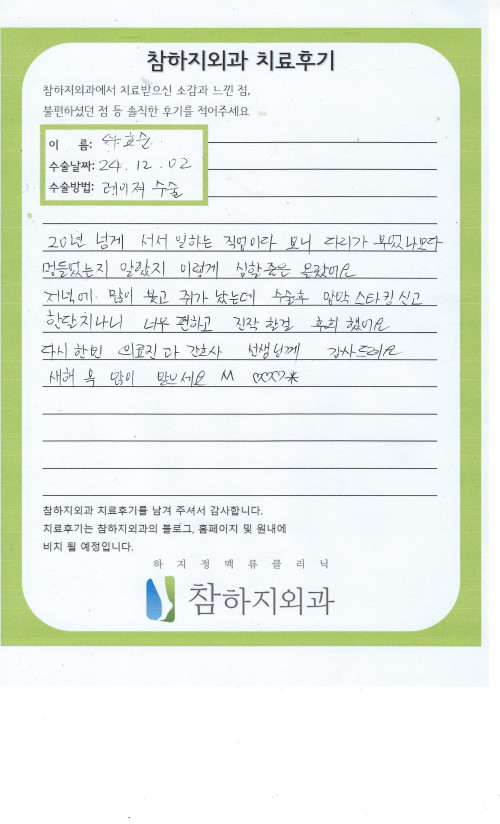 참하지외과 치료후기
참하지외과에서 치료받으신 소감과 느낀 점,
불편하셨던 점 등 솔직한 후기를 적어주세요
이 름: 효순
수술날짜: 24. 12. 02
수술방법: 레이저 수술
20년 넘게 서서 일하는 직업이다 보니 다리가 부었나보다
멍들었는지 알았지 이렇게 심할줄은 몰랐어요
저녁에 많이 붓고 쥐가 났는데 수술후 압박스타킹 신고
한달 지나니 너무 편하고 진작 할걸 후회 했어요
다시 한번 의료진과 간호사 선생님께 감사드려요
새해 복 많이 받으세요
참하지외과 치료후기를 남겨 주셔서 감사합니다.
치료후기는 참하지외과의 블로그, 홈페이지 및 원내에
비치 될 예정입니다.
하지정맥류클리닉
참하지외과